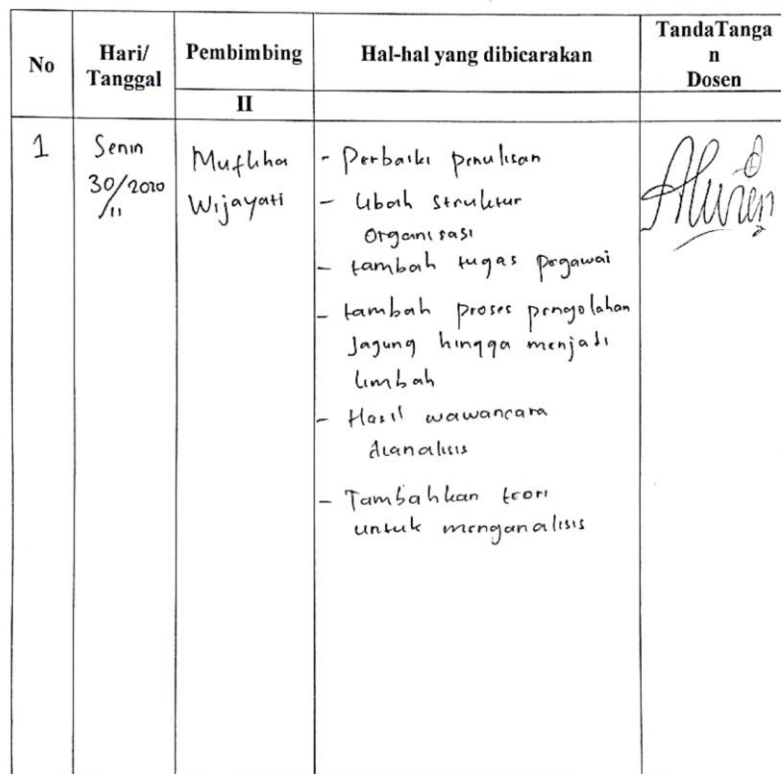 No
Hari/
Tanggal
Pembimbing
Hal-hal yang dibicarakan
TandaTanga
n
Dosen
II
1
Senin
30/2020
/11
Mufliha
Wijayati
- Perbaiki penulisan
- Ubah struktur
Organisasi
- tambah tugas pegawai
- tambah proses pengolahan
Jagung hingga menjadi
limbah
- Hasil wawancara
dianalisis
- Tambahkan teori
untuk menganalisis